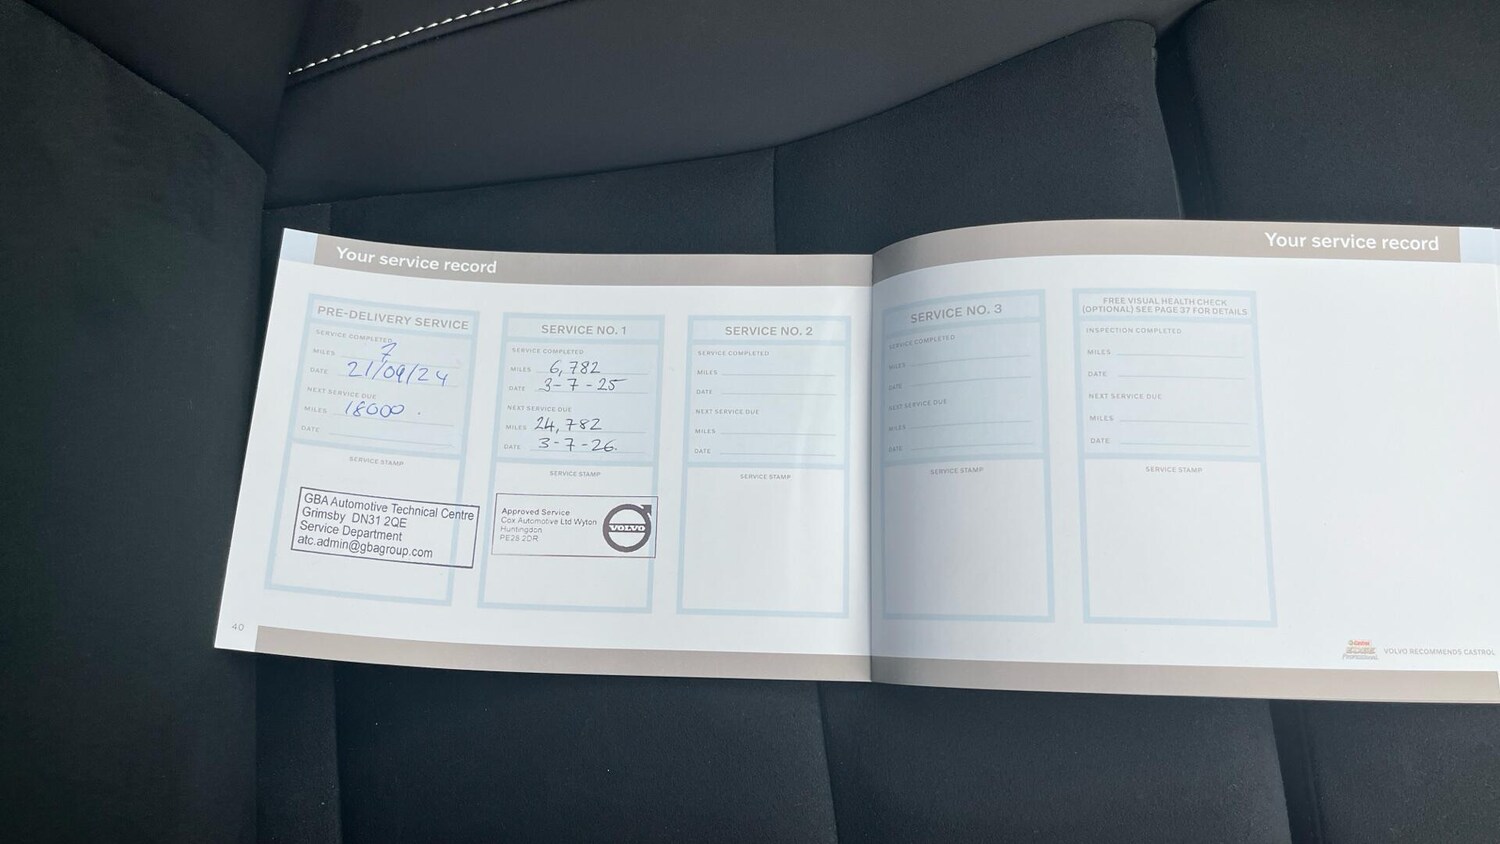 Your service record
PRE-DELIVERY SERVICE
SERVICE COMPLETED
MILES 7
DATE 21/09/24
NEXT SERVICE DUE
MILES 18000.
DATE
SERVICE STAMP
GBA Automotive Technical Centre
Grimsby DN31 2QE
Service Department
atc.admin@gbagroup.com
SERVICE NO. 1
SERVICE COMPLETED
MILES 6,782
DATE 3-7-25
NEXT SERVICE DUE
MILES 24,782
DATE 3-7-26.
SERVICE STAMP
Approved Service
Cox Automotive Ltd Wyton
Huntingdon
PE28 2DR
VOLVO
SERVICE NO. 2
SERVICE COMPLETED
MILES
DATE
NEXT SERVICE DUE
MILES
DATE
SERVICE STAMP
40
Your service record
SERVICE NO. 3
SERVICE COMPLETED
MILES
DATE
NEXT SERVICE DUE
MILES
DATE
SERVICE STAMP
FREE VISUAL HEALTH CHECK
(OPTIONAL) SEE PAGE 37 FOR DETAILS
INSPECTION COMPLETED
MILES
DATE
NEXT SERVICE DUE
MILES
DATE
SERVICE STAMP
VOLVO RECOMMENDS CASTROL